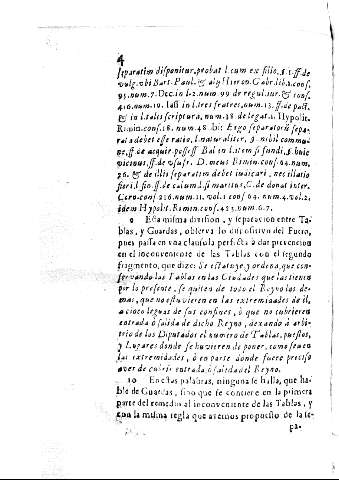 4
separatim disponitur, probat l. cum ex filio, §. 1. ff. de
vulg. vbi Bart. Paul. & alij Hieron. Gabr. lib. 1. cons.
95. num. 7. Dec. in l. 2. num. 99 de regul. iur. & cons.
416. num. 19. Iass. in l. tres fratres, num. 13. ff. de pact.
& in l. talis scriptura, num. 38 de legat. 1. Hypolit.
Rimin. cons. 18. num. 48. ibi: Ergo separatorũ sepa-
rata debet esse ratio, l. naturaliter, §. nihil commu-
ne, ff. de acquir. posses. Bal. in l. item si fundi, §. huic
vicinus, ff. de vsufr. D. meus Rimin. cons. 64. num.
26. & de illis separatim debet iudicari, nec illatio
fieri, l. fin. ff. de calum. l. si maritus, C. de donat. inter.
Cero. cons. 226. num. 11. vol. 1. cons. 64. num. 4. vol. 2.
idem Hypolit. Rimin. cons. 423. num. 6. 7.
9 Esta misma division, y separacion entre Ta-
blas, y Guardas, observa lo dispositivo del Fuero,
pues passa en vna clausula perfecta à dar prevencion
en el inconveniente de las Tablas con el segundo
fragmento, que dize: Se estatuye, y ordena, que con-
servando las Tablas en las Ciudades que las tienen
por lo presente, se quiten de todo el Reyno las de-
mas, que no estuvieren en las extremidades de èl,
a cinco leguas de sus confines, ò que no cubrieren
entrada, ò salida de dicho Reyno, dexando à arbi-
trio de los Diputados el numero de Tablas, puestos,
y Lugares donde se huvieren de poner, como sea en
las extremidades, ò en parte donde fuere preciso
aver de cubrir entrada, ò salida del Reyno.
10 En estas palabras, ninguna se halla, que ha-
ble de Guardas, sino que se contiene en la primera
parte del remedio al inconveniente de las Tablas, y
con la misma regla que avemos propuesto de la se-
pa-